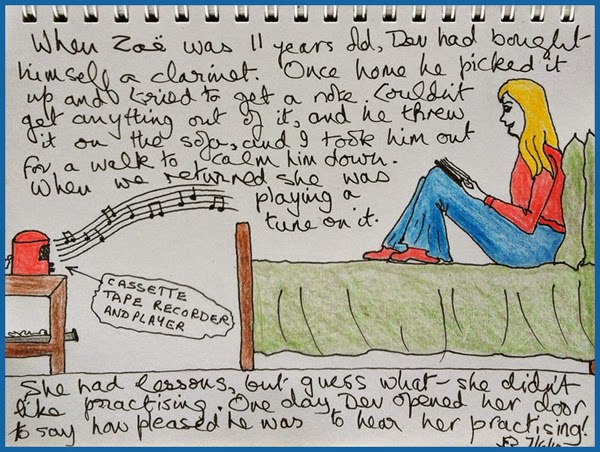 When Zoë was 11 years old, Dev had bought
himself a clarinet. Once home he picked it
up and tried to get a note. Couldn't
get anything out of it, and he threw
it on the sofa, and I took him out
for a walk to calm him down.
When we returned she was
playing a
tune on it.
CASSETTE
TAPE RECORDER
AND PLAYER
She had lessons, but guess what - she didn't
like practising. One day Dev opened her door
to say how pleased he was to hear her practising!